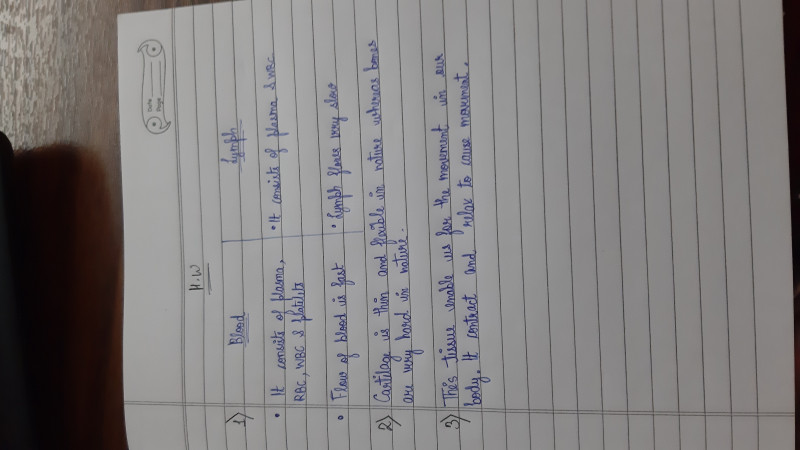 Date
Page
H.W
1) Blood Lymph
• It consists of plasma, • It consists of plasma & WBC
RBC, WBC & platelits
• Flow of blood is fast • Lymph flows very slow
2) Cartilage is thin and flexible in nature whereas bones
are very hard in nature.
3) This tissue enable us for the movement in our
body. It contract and relax to cause movement.